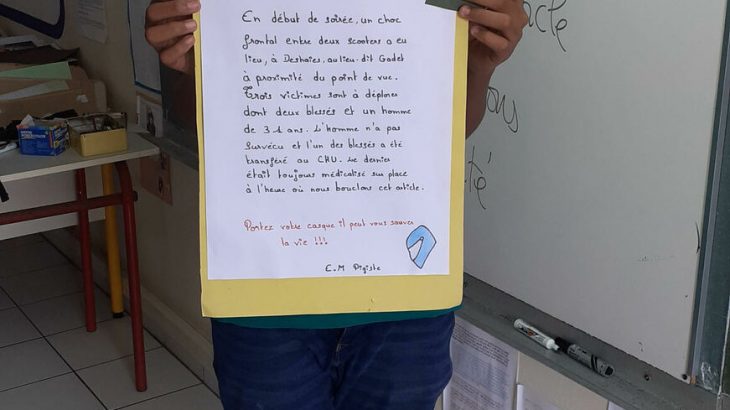 En début de soirée, un choc
frontal entre deux scooters a eu
lieu, à Deshaies, au lieu-dit Gadet
à proximité du point de vue.
Trois victimes sont à déplorer
dont deux blessés et un homme
de 31 ans. L'homme n'a pas
survécu et l'un des blessés a été
transféré au CHU. Le dernier
était toujours médicalisé sur place
à l'heure où nous bouclons cet article.
Portez votre casque il peut vous sauver
la vie !!!
E.M Pigiste
cle
ons
té